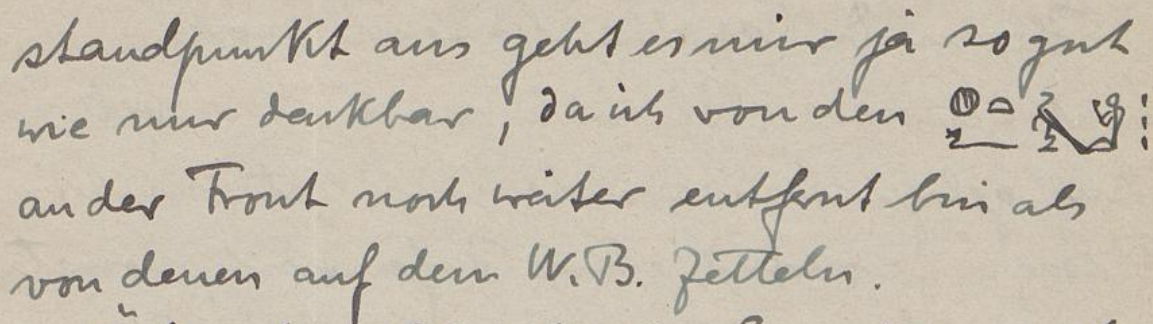 standpunkt aus geht es mir ja so gut
wie nur denkbar, da ich von den
an der Front noch weiter entfernt bin als
von denen auf dem W.B. Zetteln.